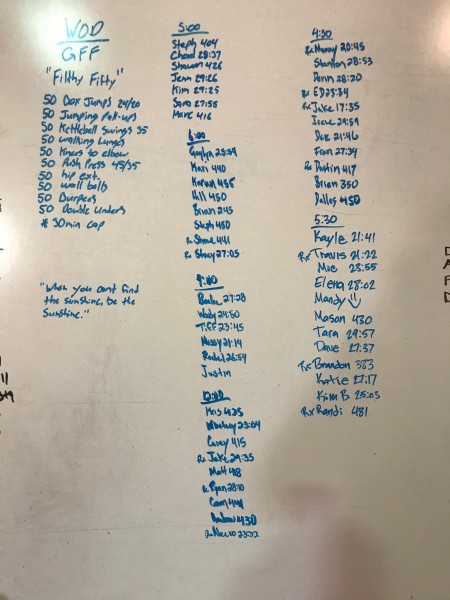 WOD
GFF
"Filthy Fifty"
50 Box Jumps 24/20
50 Jumping Pull-ups
50 Kettlebell swings 35
50 walking Lunges
50 Knees to elbow
50 Push Press 45/35
50 hip ext.
50 wall balls
50 Burpees
50 Double Unders
* 30 min cap
"When you cant find
the sunshine, be the
Sunshine."
5:00
Steph 404
Chad 28:37
Shawn 426
Jenn 29:26
Kim 29:25
Sara 27:55
Marc 416
6:00
Kari 440
Karan 455
Hill 450
Brian 245
Steph 450
Rx Shane 441
Rx Stacy 27:05
9:00
27:28
Wady 24:50
Tiff 23:45
Missy 21:14
Rachel 26:54
Justin
12:00
Kris 425
Whitney 23:04
Corey 415
Rx Jake 29:35
Matt 418
Rx Ryan 28:10
430
23:32
4:30
20:45
28:53
28:20
Rx ED 23:34
Rx Jake 17:35
Irene 29:59
Dee 21:46
Fran 27:39
Rx Dustin 417
Brian 350
Dallas 450
5:30
Kayle 21:41
Rx Travis 21:22
Mic 23:55
Elena 28:02
Mandy
Mason 430
Tara 29:57
Dave 27:37
Rx Brandon 383
Katie 27:17
Kim B 25:03
Rx Randi 481